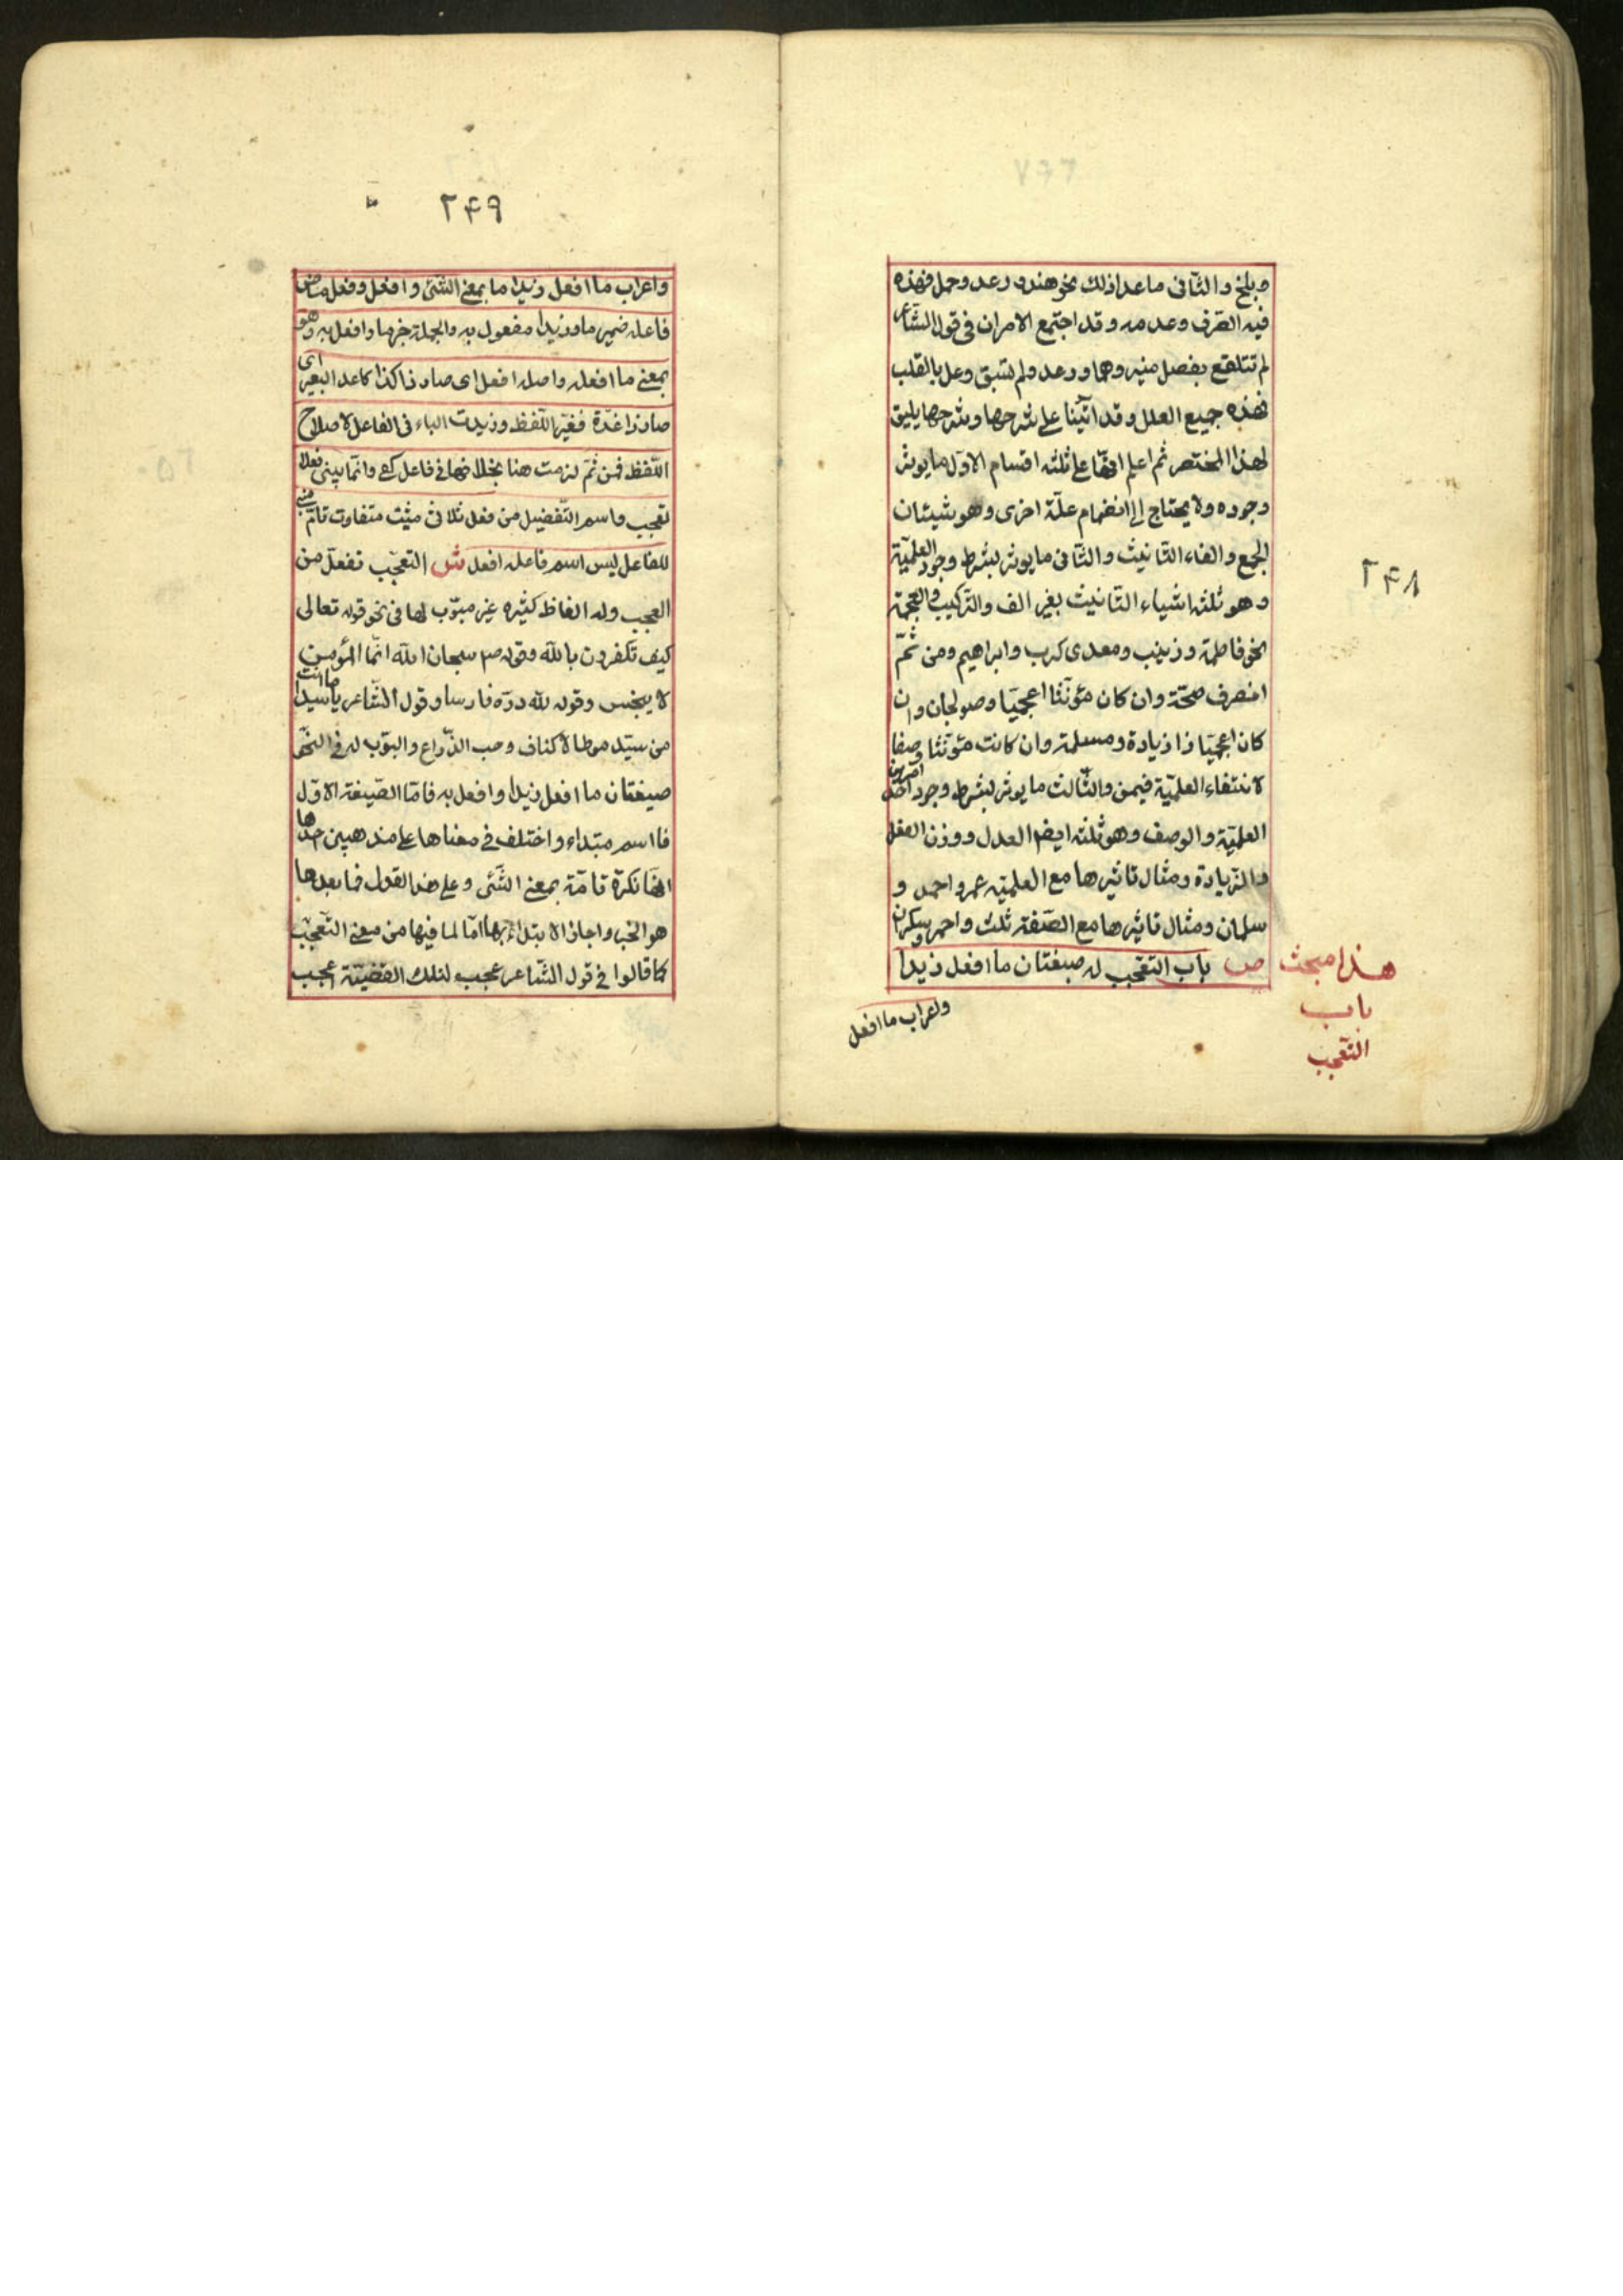 ۲۴۸
وبلخ والثانی ماعدا ذلك نحو هند ودعد وجمل فهذه
فیه الصّرف وعدمه وقد اجتمع الامران فی قول الشاعر
لم تتلفّع بفضل منیرها ودعد ولم تسق دعد بالقلب
فهذه جمیع العلل وقد اتینا علی شرحها وشرحها یلیق
لهذا المختصر ثم اعلم انها علی ثلثه اقسام الاوّل ما یوثر
وجوده ولا یحتاج الی انضمام علّة اخری وهو شیئان
الجمع والفاء التانیث والثانی ما یوثر بشرط وجود العلمیّة
وهو ثلثه اشیاء التانیث بغیر الف والترکیب والعجمة
نحو فاطمة وزینب ومعدی کرب وابراهیم ومن ثمّ
انصرف صحّة وان کان مؤنّثا اعجمیّا وصولجان وان
کان اعجمیّا ذا زیادة ومسلمة وان کانت مؤنّثا وصفا
لانتفاء العلمیّة فیهن والثّالث ما یوثر بشرط وجود احد امرین
العلمیّة والوصف وهو ثلثه ایضا العدل ووزن الفعل
والزیادة ومثال تاثیرها مع العلمیّه عمر واحمد و
سلمان ومثال تاثیرها مع الصّفة ثلث واحمر وسکران
ص باب التعجّب له صیغتان ما افعل زیدا
هذا مبحث
باب
التعجّب
واعراب ما افعل
۲۴۹
واعراب ما افعل زیدا ما بمعنی الشّئ وافعل وفعل ماض
فاعله ضمیر ما وزیدا مفعول به والجملة خبرها وافعل به وهو
بمعنی ما افعله واصله افعل ای صار ذا کذا کاغد البعیر ای
صار ذا غدّة فغیّر اللّفظ وزیدت الباء فی الفاعل لاصلاح
اللّفظ فمن ثمّ لزمت هنا بخلافها فی فاعل کفی وانّما یبنی فعلا
تعجّب واسم التّفضیل من فعل ثلاثی مثبت متفاوت تامّ مبنی
للفاعل لیس اسم فاعله افعل ش التعجّب تفعّل من
العجب وله الفاظ کثیره غیر مبوّب لها فی نحو قوله تعالی
کیف تکفرون بالله وقوله صم سبحان الله انّما المؤمن
لا ینجس وقوله لله درّه فارسا وقول الشّاعر یا سیدا ما انت
من سیّد موطا لاکناف رحب الذّراع والبوّب له فی النحو
صیغتان ما افعل زیدا وافعل به فامّا الصّیغة الاوّل
فما اسم مبتداء واختلف فی معناها علی مذهبین احدها
انّها نکرة تامّة بمعنی الشّئی وعلی هذا القول فما بعدها
هو الخبر واجاز الابتداء بها امّا لما فیها من معنی التعجّب
کما قالوا فی قول الشّاعر عجب لتلك القضیّة اعجب